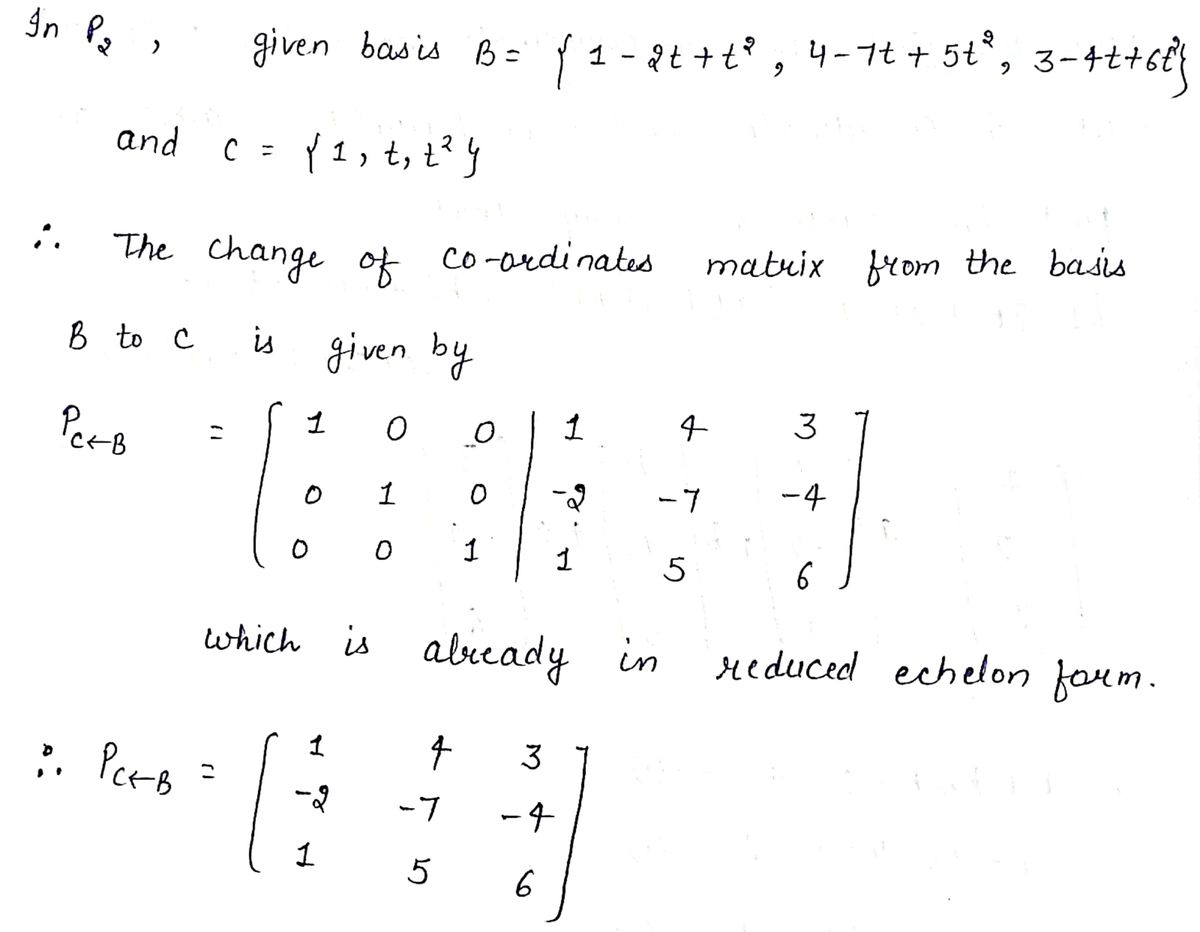 In P₂, given basis B = { 1 - 2t + t², 4 - 7t + 5t², 3 - 4t + 6t² }
and C = { 1, t, t² }
∴ The change of co-ordinates matrix from the basis
B to C is given by
P_{C←B} = [ 1 0 0 | 1 4 3
0 1 0 | -2 -7 -4
0 0 1 | 1 5 6 ]
which is already in reduced echelon form.
∴ P_{C←B} = [ 1 4 3
-2 -7 -4
1 5 6 ]